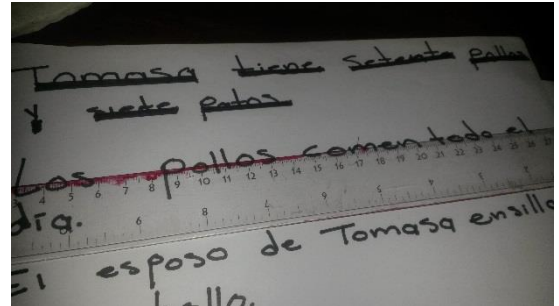 Tomasa tiene Setenta pollos
y siete patos
Los pollos comen todo el
día.
El esposo de Tomasa ensilla